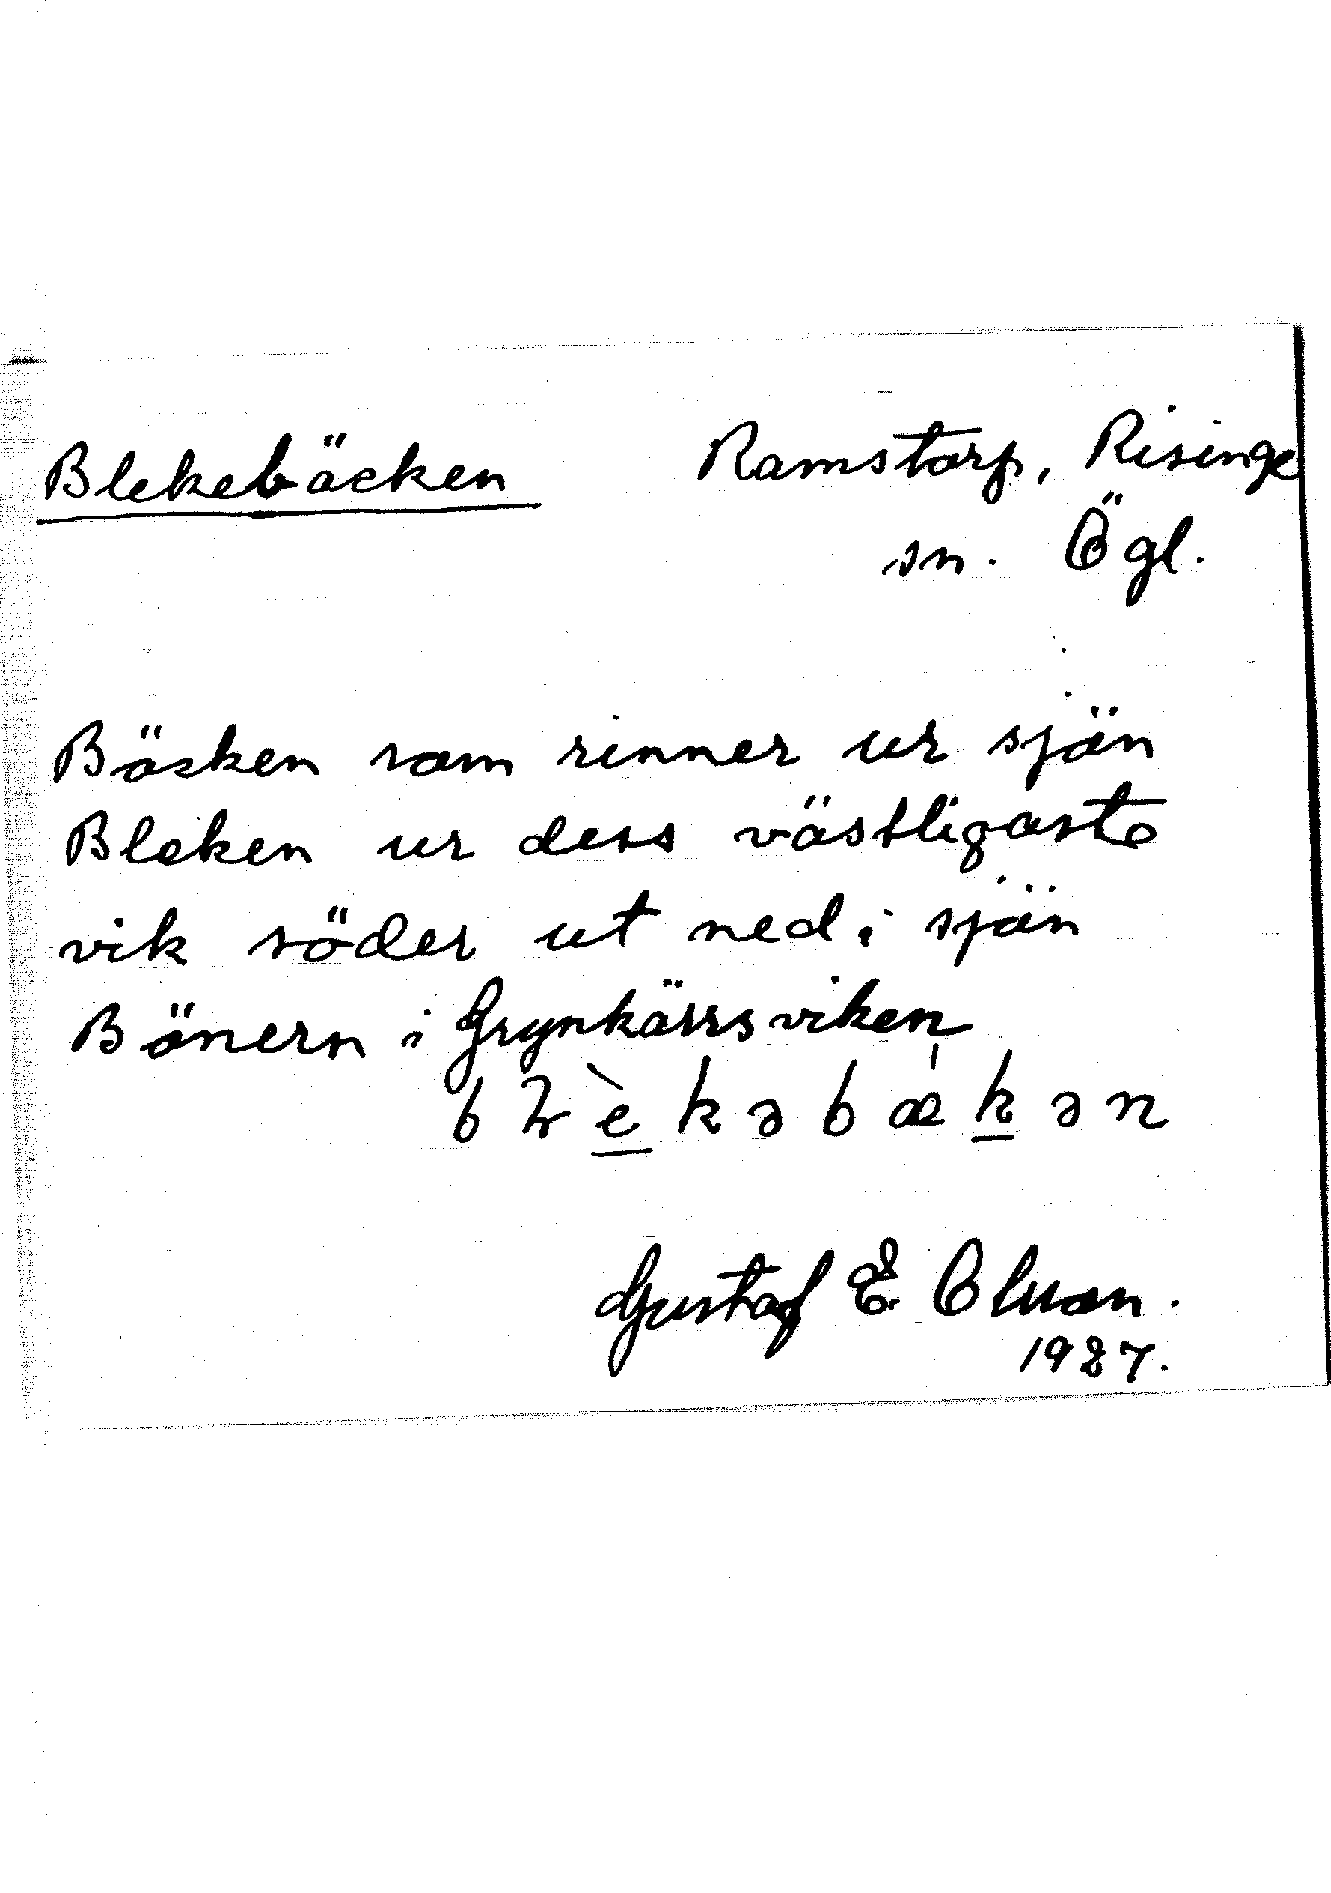 Blekebäcken Ramstorp, Risinge
sn. Ögl.
Bäcken som rinner ur sjön
Bleken ur dess västligaste
vik söder ut ned i sjön
Bönern i Grynkärrsviken
Gustaf E
1927.